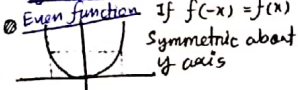 Even function If f(-x) = f(x)
Symmetric about
y axis